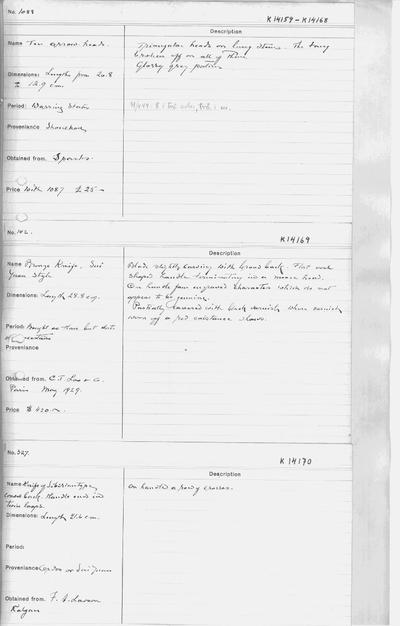 No. 1088
K 14159 – K 14168
Description
Name Ten arrow heads.
Triangular heads on long stems. The tang
broken off on all of them
Glossy grey patina
Dimensions: Lengths from 20.8
Period: Warring States
Provenance Shouchou
Obtained from. Sparks
Price With 1087 £ 25 –
No. 142.
K 14169
Description
Name Bronze Knife, Sui
Yuan Style
Blade slightly curving with broad back. Flat
shaped handle terminating in a moose head.
On handle four engraved characters which do not
appear to be genuine.
Partially covered with black varnish, where varnish
worn off a red substance shows.
Dimensions: Length 28.8 cm.
Period: Bought as Han but
Provenance
Obtained from. C. T. Loo & Co.
Paris May 1929.
Price $ 420.–
No. 327.
K 14170
Description
Name Knife of Siberian type,
curved back. Handle ends in
twin loops.
On handle a row of crosses.
Dimensions: Length 21.6 cm.
Period:
Provenance Ordos or Sui Yuan
Obtained from. F. A. Larson
Kalgan